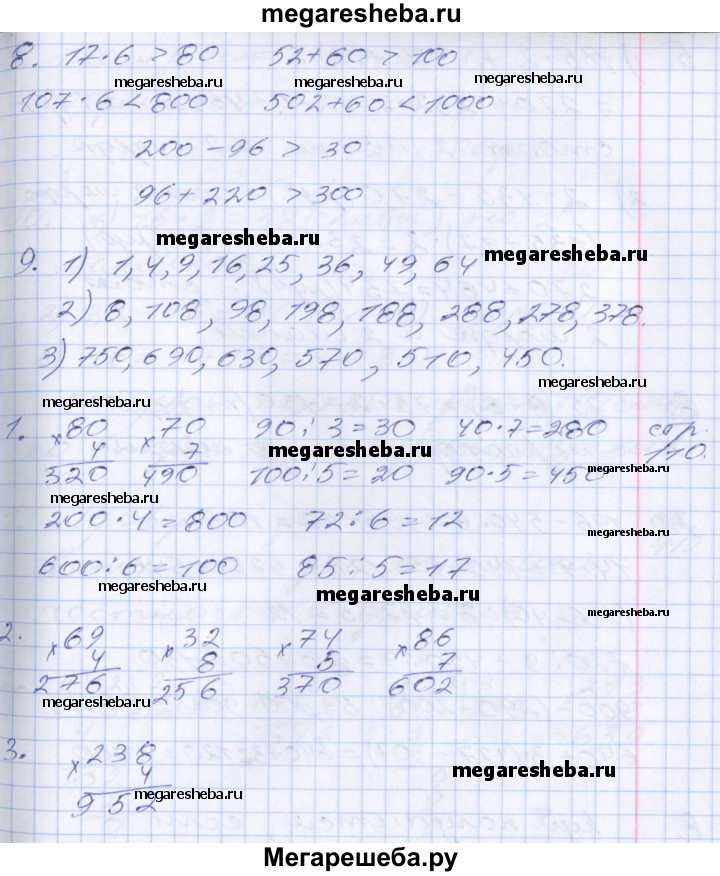 megaresheba.ru
8. 17·6 > 80 52+60 > 100
megaresheba.ru megaresheba.ru megaresheba.ru
107·6 < 800 502+60 < 1000
200 - 96 > 30
96 + 220 > 300
megaresheba.ru megaresheba.ru
9. 1) 1, 4, 9, 16, 25, 36, 49, 64
2) 8, 108, 98, 198, 188, 288, 278, 378.
3) 750, 690, 630, 570, 510, 450.
megaresheba.ru
megaresheba.ru
1. ×80 ×70 90:3=30 40·7=280 стр.
4 7 100:5=20 90·5=450 110.
320 490
megaresheba.ru
megaresheba.ru
200·4=800 72:6=12
megaresheba.ru
600:6=100 85:5=17
megaresheba.ru megaresheba.ru
megaresheba.ru
2. ×69 ×32 ×74 ×86
4 8 5 7
276 256 370 602
megaresheba.ru megaresheba.ru
3. ×238
4
megaresheba.ru
952
megaresheba.ru
Мегарешеба.ру